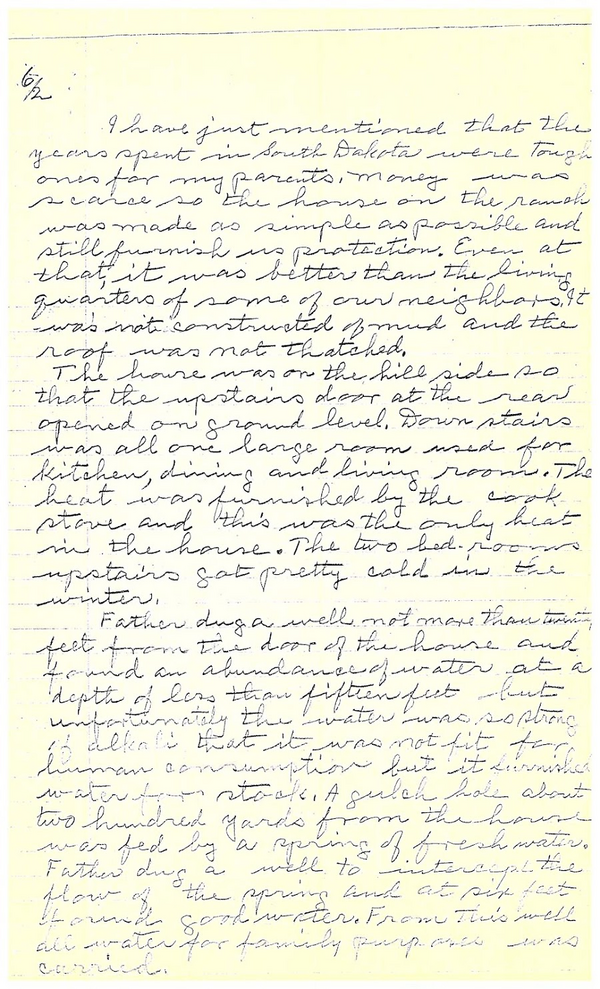 6/2
I have just mentioned that the
years spent in South Dakota were tough
ones for my parents. Money was
scarce so the house on the ranch
was made as simple as possible and
still furnish us protection. Even at
that, it was better than the living
quarters of some of our neighbors. It
was not constructed of mud and the
roof was not thatched.
The house was on the hill side so
that the upstairs door at the rear
opened on ground level. Down stairs
was all one large room used for
kitchen, dining and living room. The
heat was furnished by the cook
stove and this was the only heat
in the house. The two bed-rooms
upstairs got pretty cold in the
winter.
Father dug a well not more than twenty
feet from the door of the house and
found an abundance of water at a
depth of less than fifteen feet but
unfortunately the water was so strong
of alkali that it was not fit for
human consumption but it furnished
water for stock. A gulch hole about
two hundred yards from the house
was fed by a spring of fresh water.
Father dug a well to intercept the
flow of the spring and at six feet
found good water. From this well
all water for family purposes was
carried.